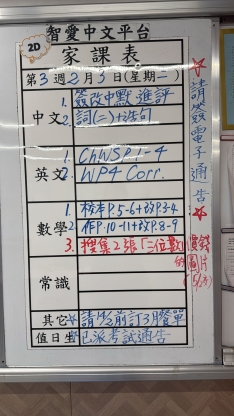 智愛中文平台
2D
家課表
第3週2月3日(星期二)
中文
1. 簽改中默進評
2. 詞(二)+造句
英文
1. Ch WSP.1-4
2. WP4 Corr.
數學
1. 校本P.5-6+改P.3-4
2. 作P.10-11+改P.8-9
3. 搜集2張「三位數」價錢的圖片(5/2交)
常識
其它
請14/2前訂3月餐單
值日生
已派考試通告
請簽電子通告